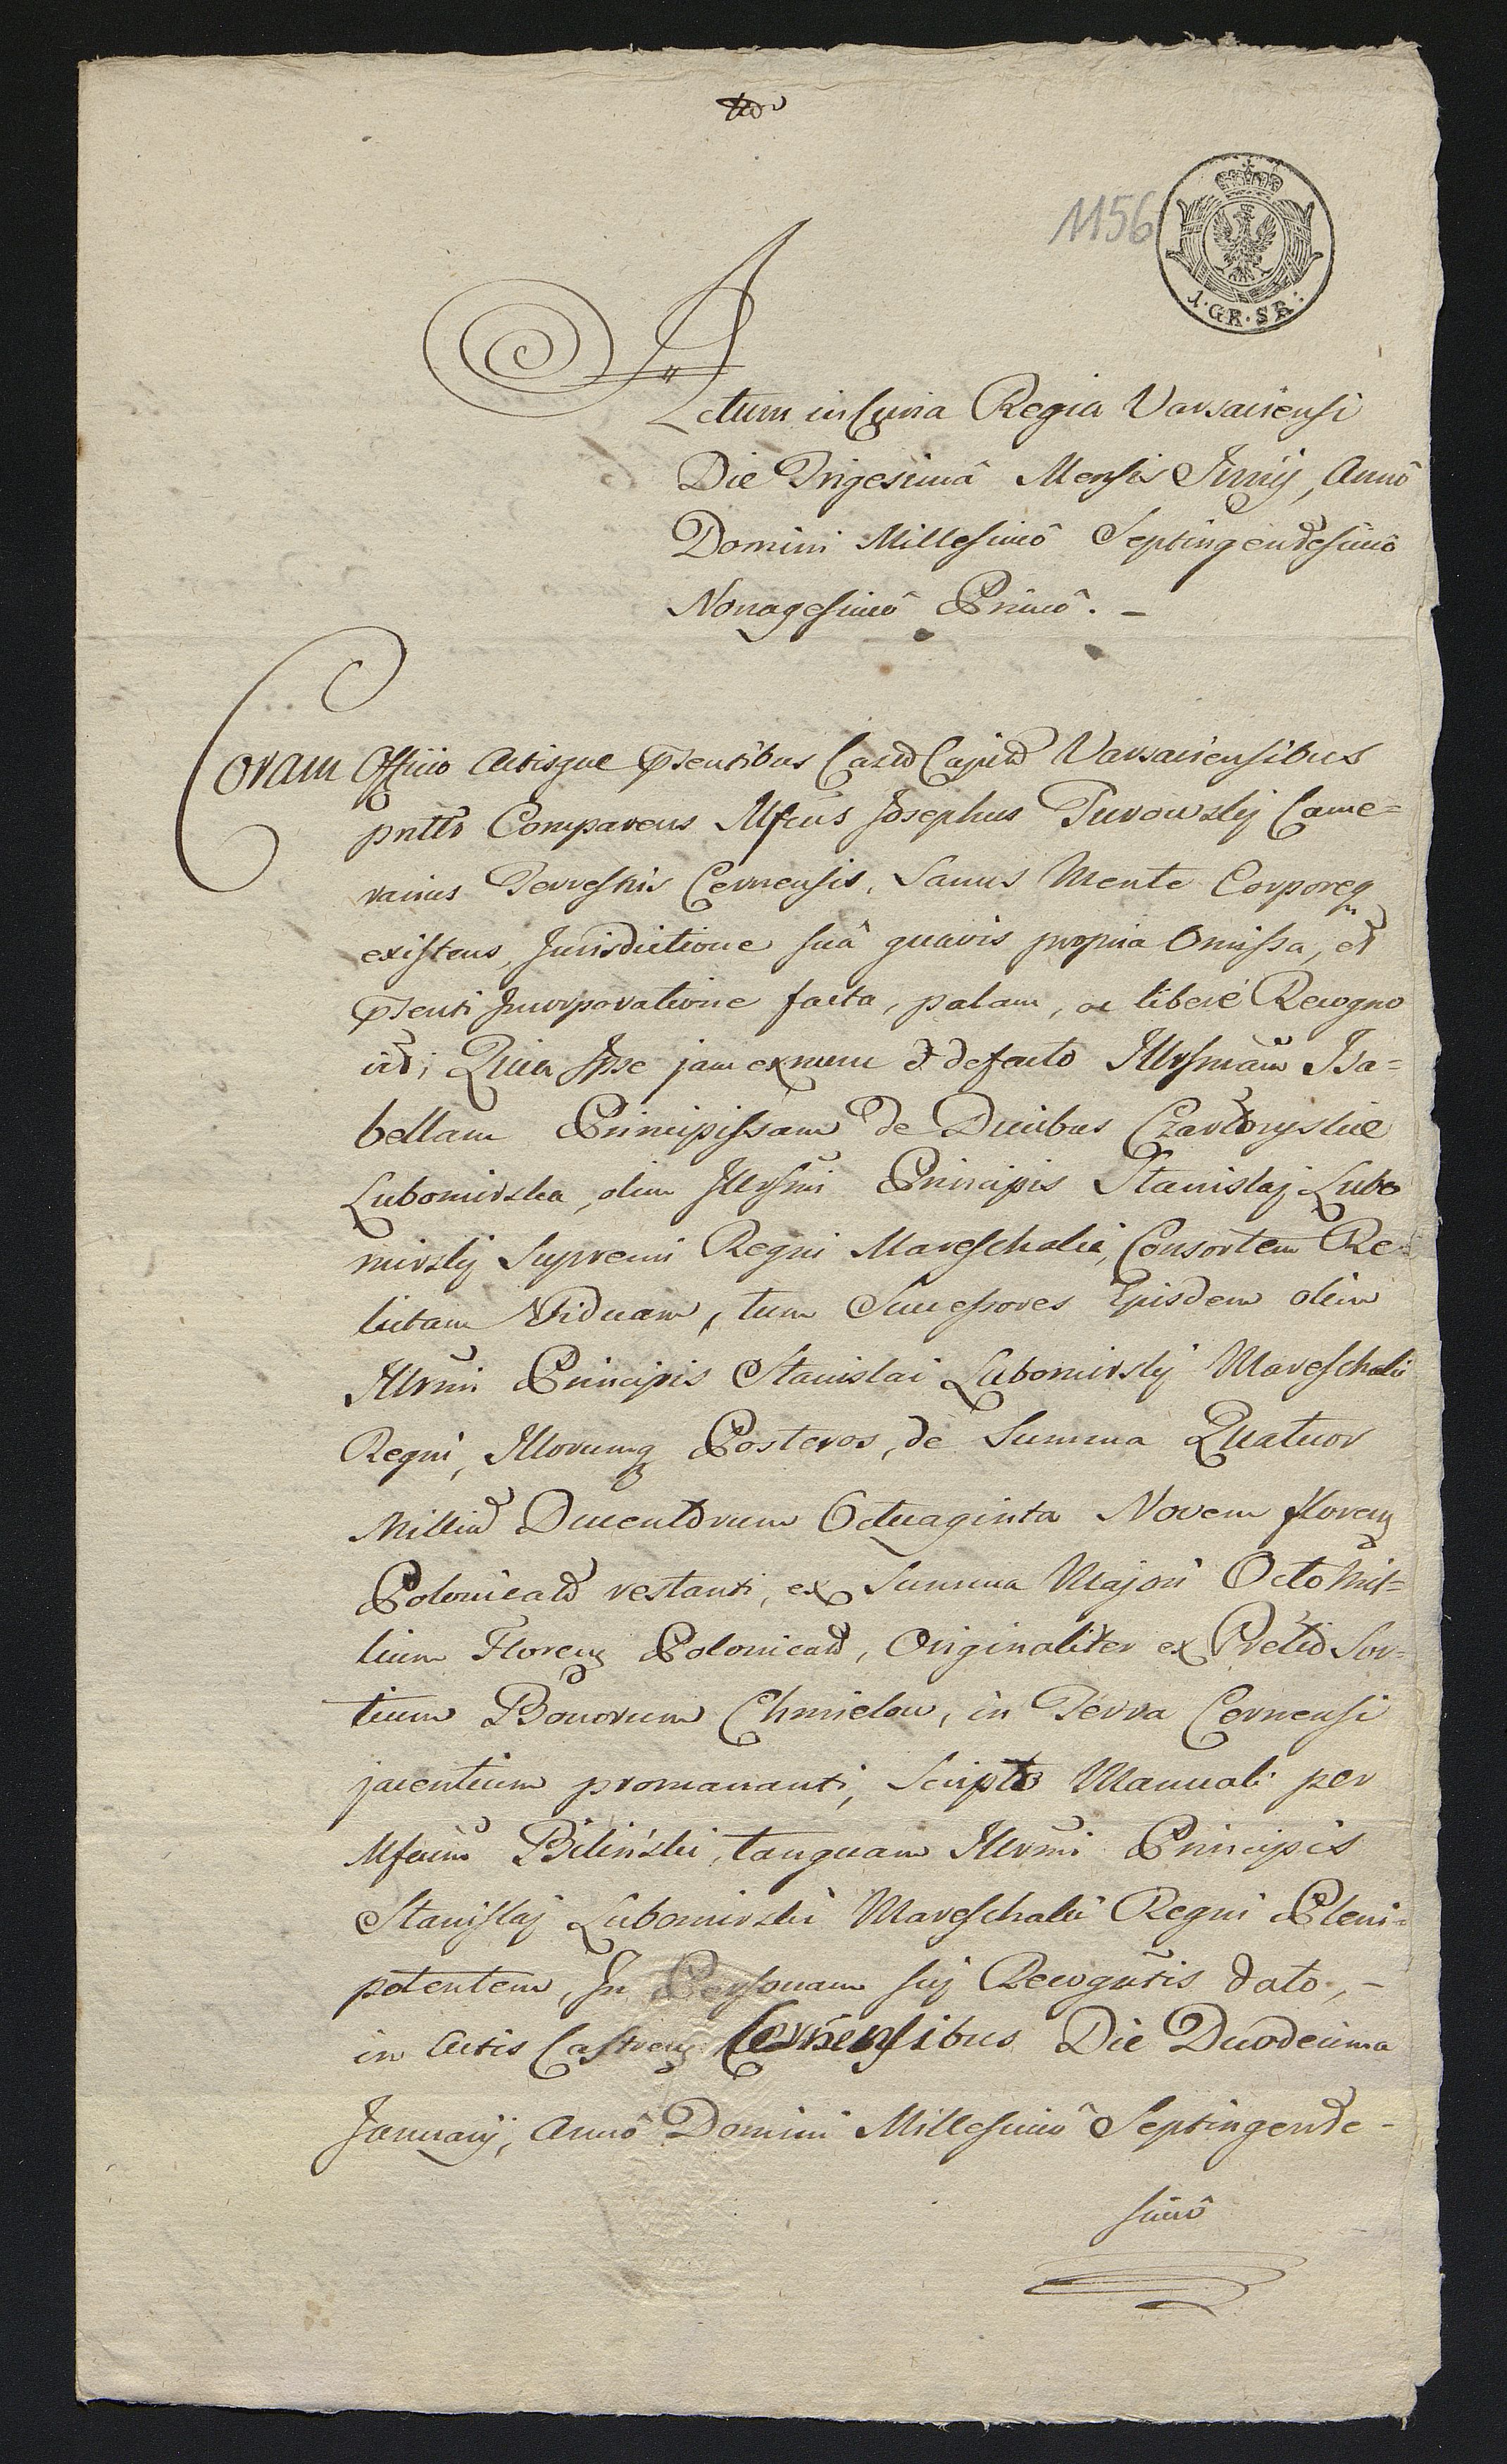 1156
1·GR·SR·
Actum in Curia Regia Varsaviensi
Die Trigesimâ Mensis Junij, Annô
Domini Millesimô Septingentesimô
Nonagesimô Primô. –
Coram Officio Actisque pntibus Castr Capit Varsaviensibus
pntr Comparens Mfcus Josephus Turowskij Came=
rarius Terrestris Cernensis, Sanus Mente Corporeq
existens, Jurisdictione suâ quavis propria Omissa, et
pnti Incorporatione facta, palam, ac liberè Recogno
vit; Quia Ipse jam ex nunc et de facto Illrsmam Isa=
bellam Principissam de Ducibus Czartoryskie
Lubomirska, olim Illrsmi Principis Stanislaj Lubo
mirskij Supremi Regni Mareschalci, Consortem Re=
lictam Viduam, tum Successores Ejusdem olim
Illrmi Principis Stanislai Lubomirskij Mareschalci
Regni, Illorumq Posteros, de Summa Quatuor
Milliu Ducentorum Octuaginta Novem floren
Polonical restanti, ex Summa Majori Octo Mil=
lium Floren Polonical, Originaliter ex Pretio Sor=
tium Bonorum Chmielow, in Terra Cernensi
jacentium promananti, Scripto Manuali per
Mfcum Biliński, tanquam Illrmi Principis
Stanislaj Lubomirski Mareschalci Regni Pleni=
potentem, In Personam suj Recogntis dato, –
in Actis Castren Cernensibus Die Duodecima
Januarij, Annô Domini Millesimô Septingente-
simô